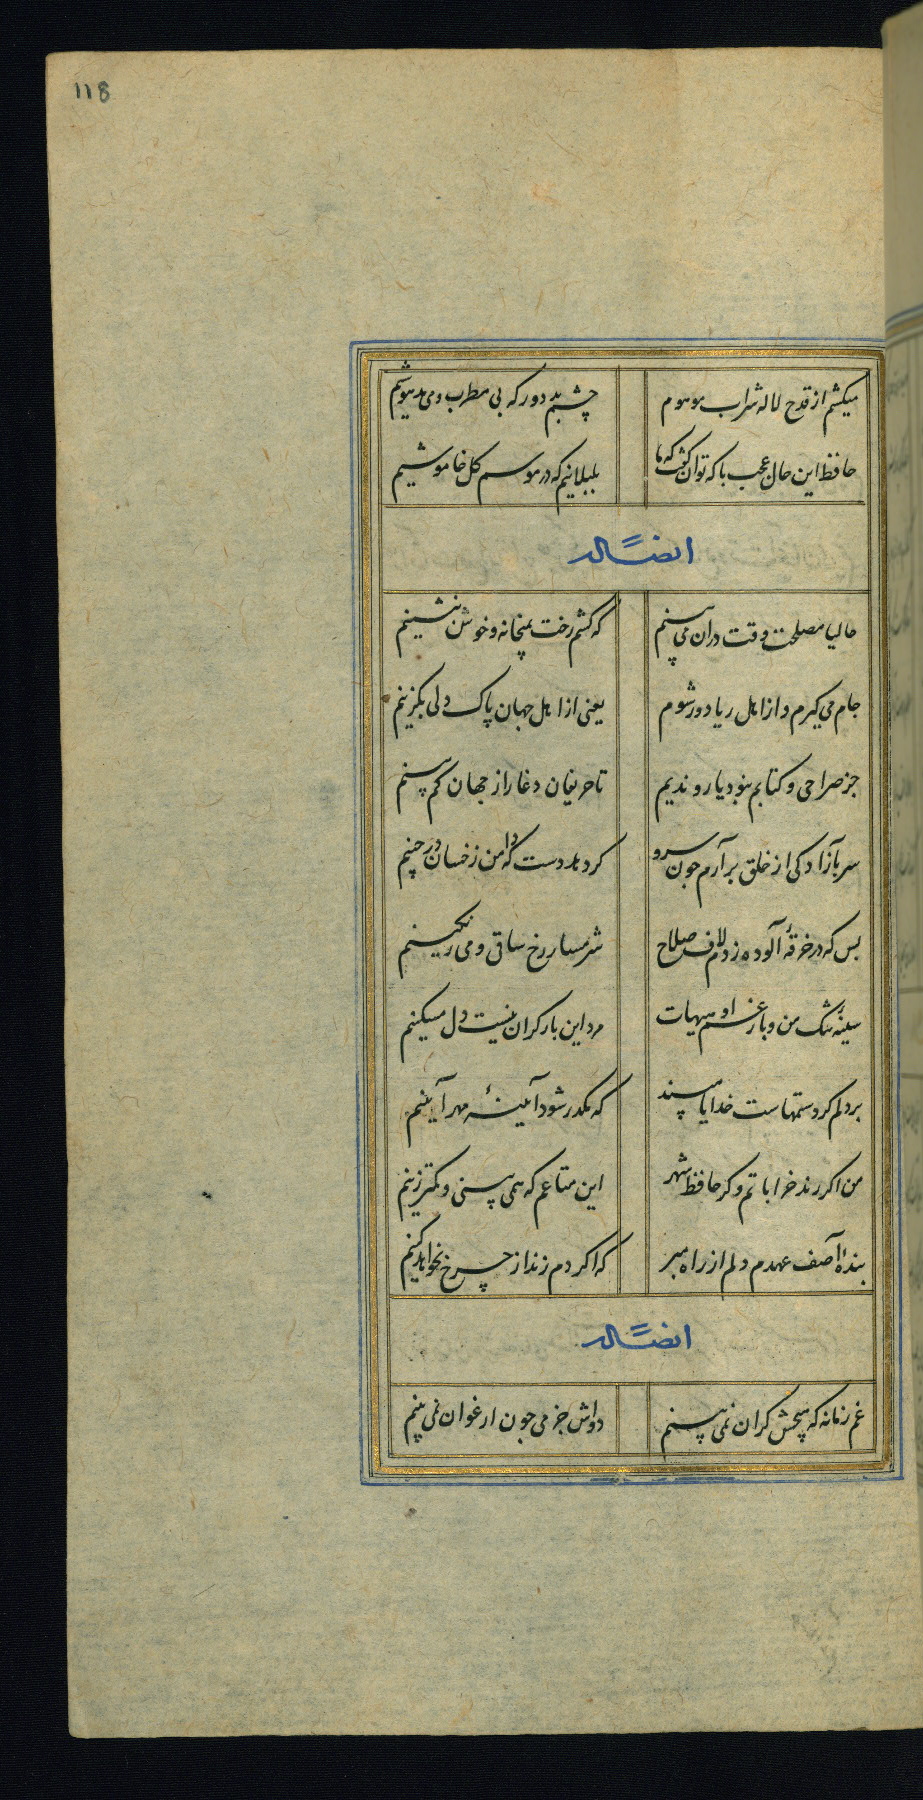 118
میکشم از قدح لاله شراب موهوم
چشم بد دور که بی مطرب و می مدهوشیم
حافظ این حال عجب با که توان گفت که ما
بلبلانیم که در موسم کل خاموشیم
ایضاً له
حالیا مصلحت وقت دران می بینم
که کشم رخت بمیخانه و خوش بنشینم
جام می گیرم و از اهل ریا دور شوم
یعنی از اهل جهان پاک دلی بکزینم
جز صراحی و کتابم نبود یار و ندیم
تا حریفان دغا را ز جهان کم بینم
سر بآزادکی از خلق برآرم جون سرو
کر دهد دست که دامن ز خسان در چینم
بس که در خرقهٔ آلوده زدم لاف صلاح
شرمسار رخ ساقی و می رنکینم
سینهٔ تنک من و بار غم او هیهات
مرد این بار کران نیست دل مسکینم
بر دلم کرد ستمهاست خدایا مپسند
که مکدر شود آئینهٔ مهر آیینم
من اکر رند خراباتم و کر حافظ شهر
این متاعم که همی بینی و کمتر زینم
بندهٔ آصف عهدم دلم از راه مبر
که اکر دم زند از چرخ بخواهد کینم
ایضاً له
غم زمانه که هیچش کران نمی بینم
دواش جز می جون ارغوان نمی بینم